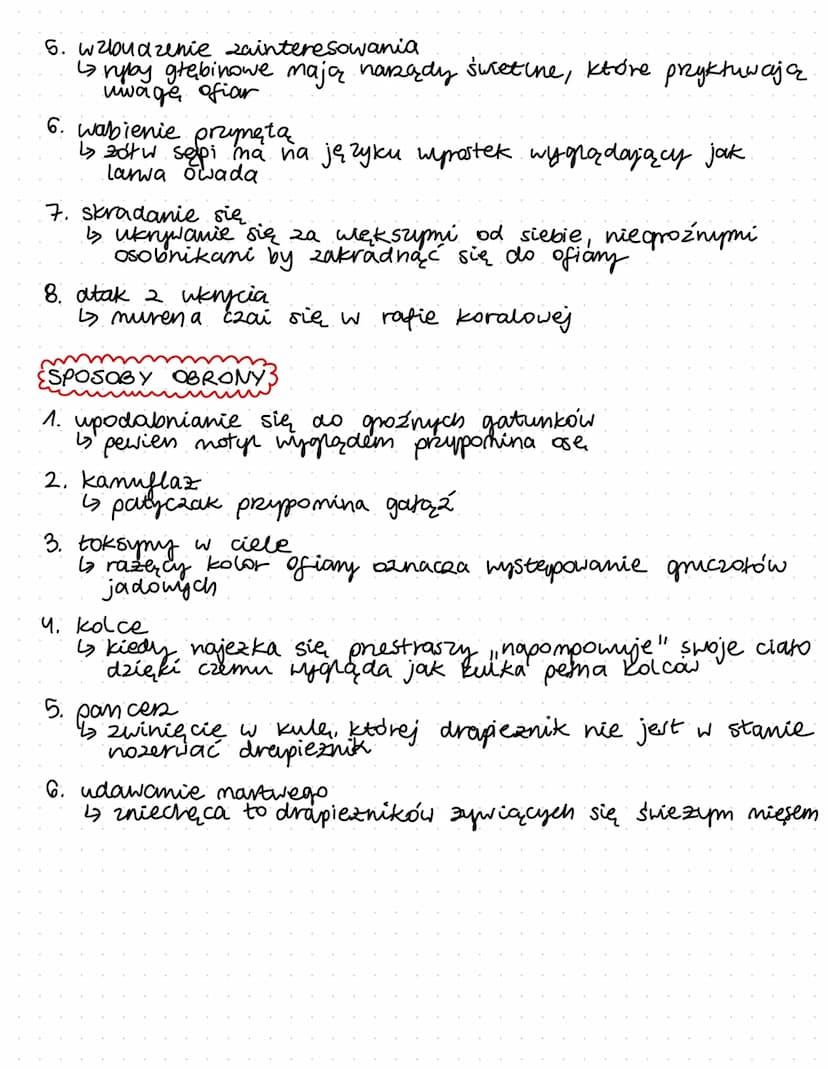 5. wzbudzenie zainteresowania
↳ ryby głębinowe mają narządy świetlne, które przykuwają
uwagę ofiar
6. wabienie przynętą
↳ żółw sępi ma na języku wyrostek wyglądający jak
larwa owada
7. skradanie się
↳ ukrywanie się za większymi od siebie, niegroźnymi
osobnikami by zakradnąć się do ofiary
8. atak z ukrycia
↳ murena czai się w rafie koralowej
SPOSOBY OBRONY
1. upodabnianie się do groźnych gatunków
↳ pewien motyl wyglądem przypomina osę
2. kamuflaż
↳ patyczak przypomina gałąź
3. toksyny w ciele
↳ rażący kolor ofiary oznacza występowanie gruczołów
jadowych
4. kolce
↳ kiedy najeżka się przestraszy „napompowuje" swoje ciało
dzięki czemu wygląda jak kulka pełna kolców
5. pancerz
↳ zwinięcie w kulę, której drapieżnik nie jest w stanie
rozerwać drapieżnik
6. udawanie martwego
↳ zniechęca to drapieżników żywiących się świeżym mięsem